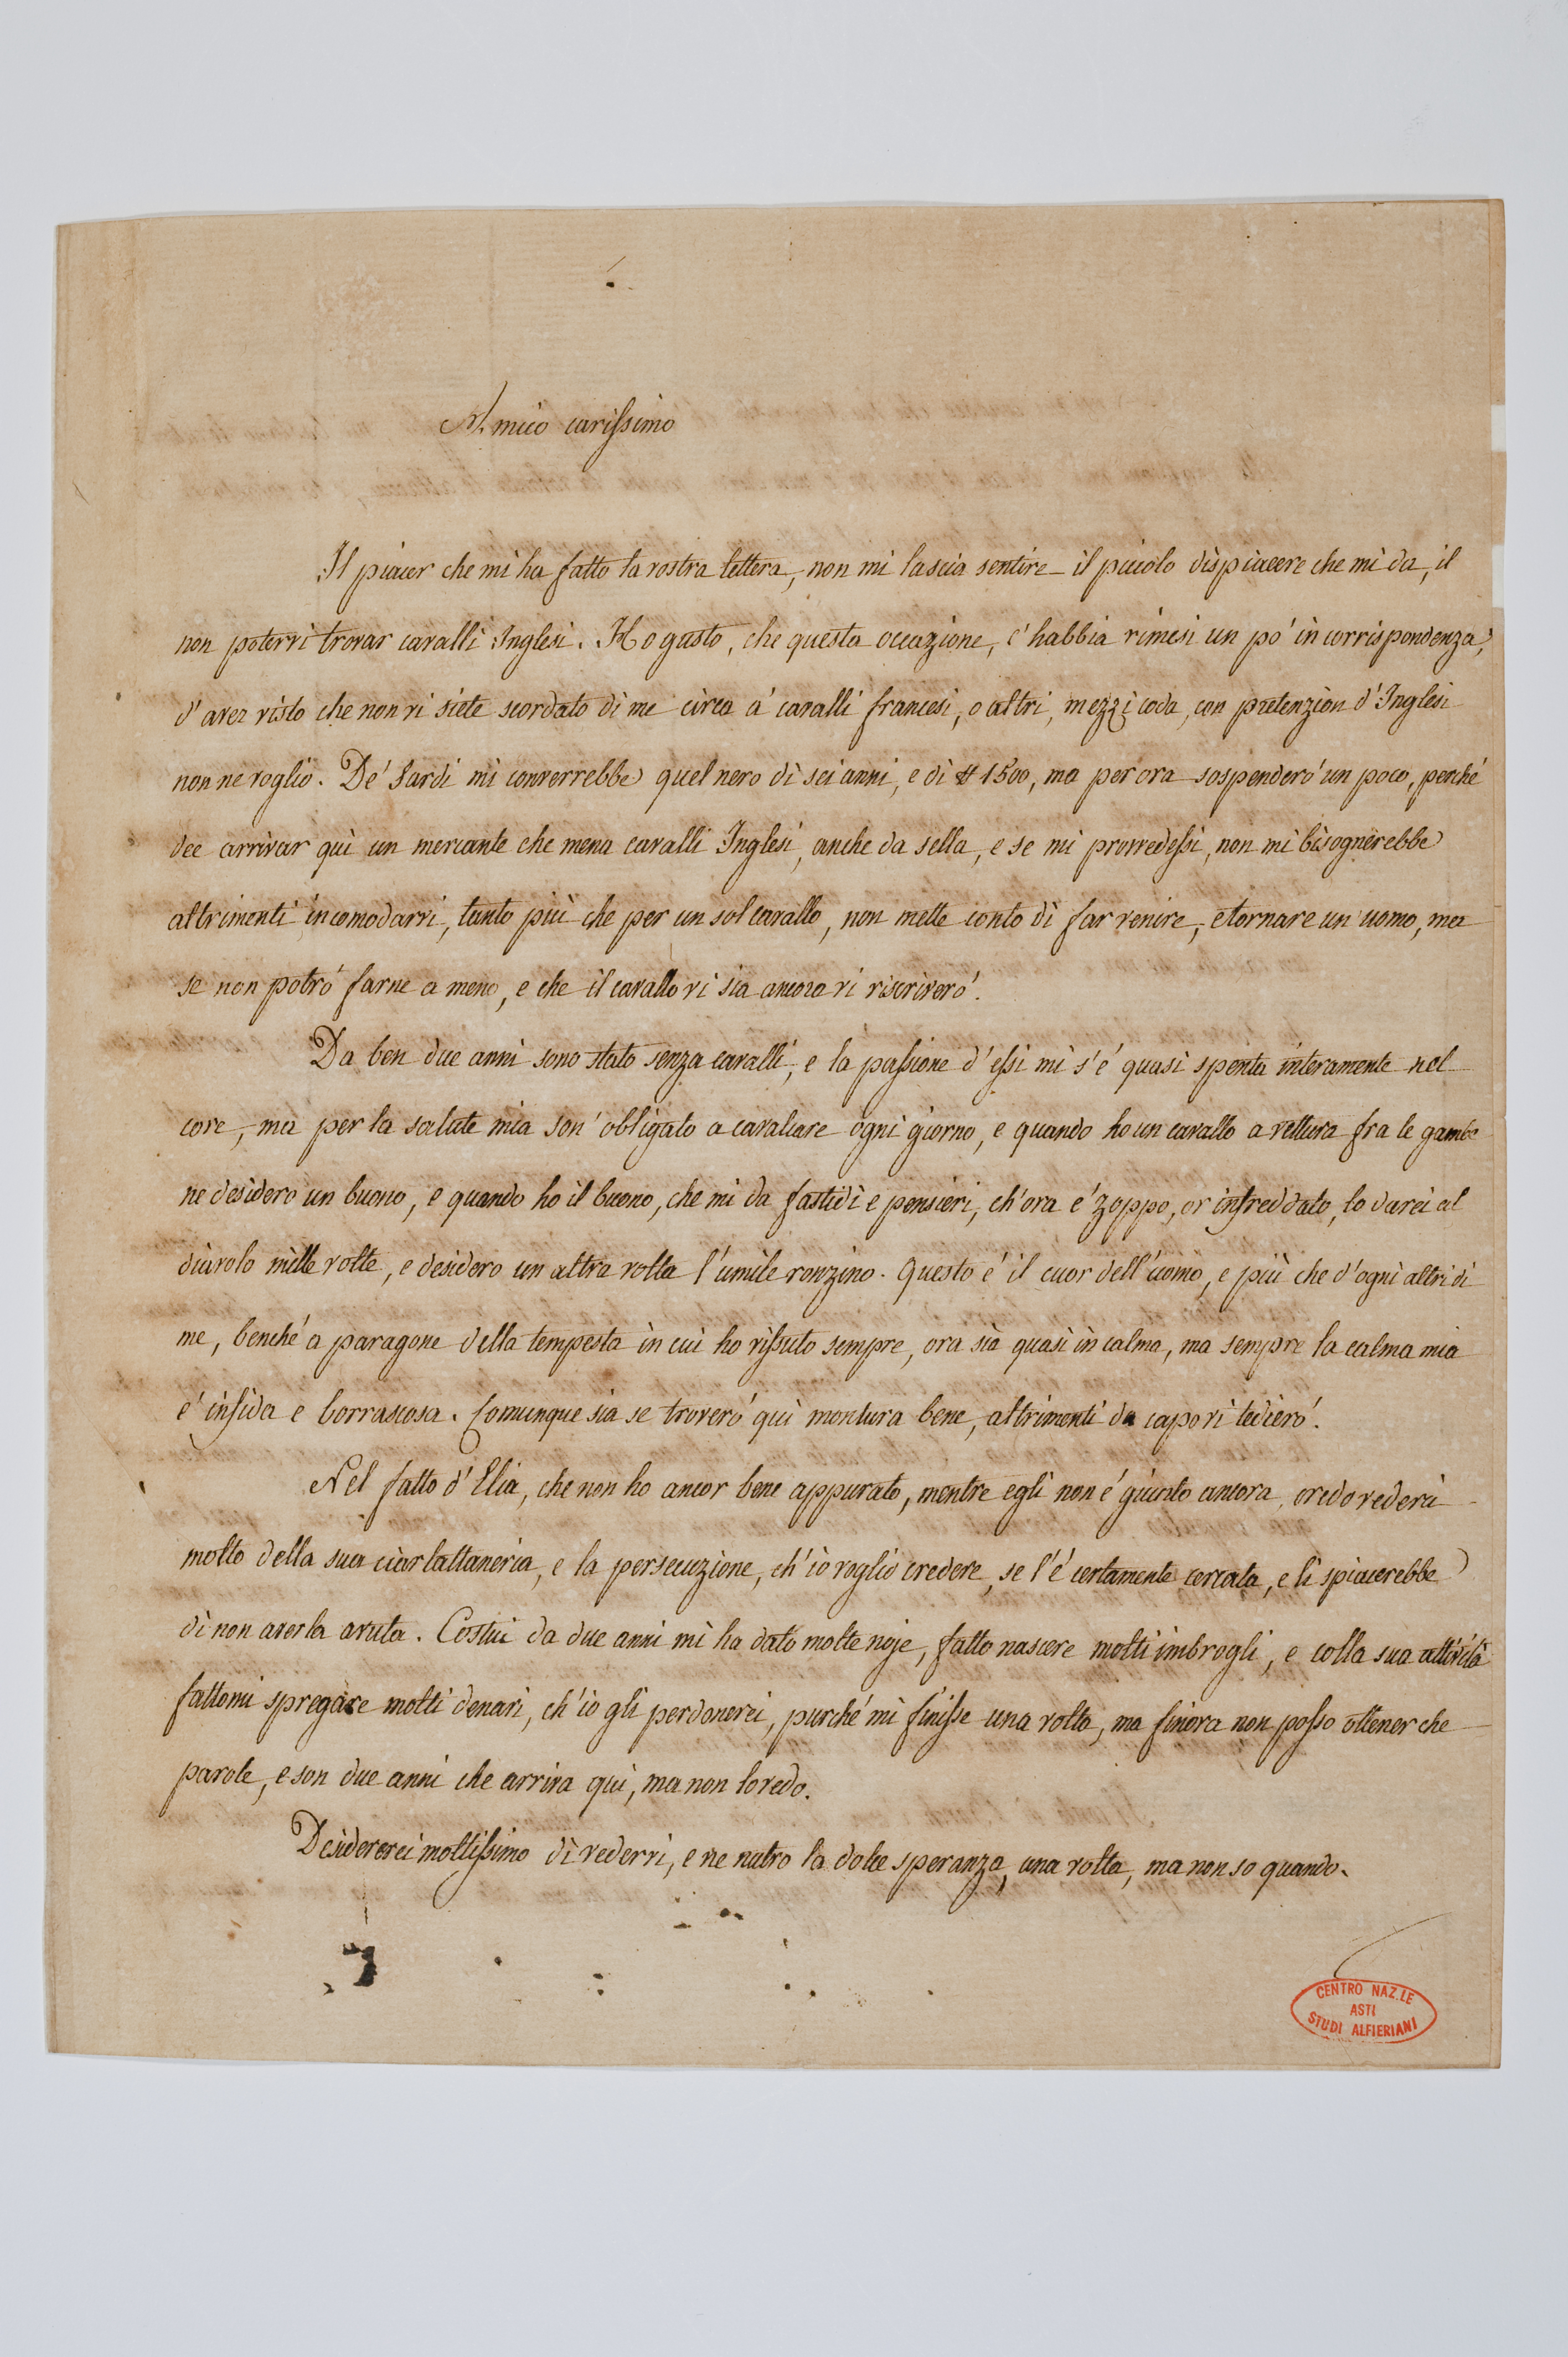 Amico carissimo
Il piacer che mi ha fatto la vostra lettera, non mi lascia sentire il piciolo dispiacere che mi da, il
non potervi trovar cavalli Inglesi. Ho gusto, che questa occazione, c'habbia rimesi un po' in corrispondenza,
d'aver visto che non vi siete scordato di me circa a' cavalli francesi, o altri, mezzi coda, con pretenzion d'Inglesi
non ne voglio. De' Sardi mi converrebbe quel nero di sei anni, e di # 1500, ma per ora sospenderó un poco, perché
dee arrivar quì un mercante che mena cavalli Inglesi, anche da sella, e se mi provvedessi, non mi bisognerebbe
altrimenti incomodarvi, tanto più che per un sol cavallo, non mette conto di far venire, e tornare un uomo, ma
se non potró farne a meno, e che il cavallo vi sia ancora vi riscriveró.
Da ben due anni sono stato senza cavalli, e la passione d'essi mi s'é quasi spenta interamente nel
core, ma per la salute mia son' obligato a cavalcare ogni giorno, e quando ho un cavallo a vettura fra le gambe
ne desidero un buono, e quando ho il buono, che mi da fastidi e pensieri, ch'ora é zoppo, or infreddato, lo darei al
diavolo mille volte, e desidero un altra volta l'umile ronzino. Questo é il cuor dell'uomo, e più che d'ogni altri di
me, benché a paragone della tempesta in cui ho vissuto sempre, ora sia quasi in calma, ma sempre la calma mia
é insida e borrascosa. Comunque sia se troveró quì montura bene, altrimenti da capo vi tedieró.
Nel fatto d'Elia, che non ho ancor bene appurato, mentre egli non é giunto ancora, credo vedervi
molto della sua ciarlattaneria, e la persecuzione, ch'io voglio credere, se l'é certamente cercata, e li spiacerebbe
di non averla avuta. Costui da due anni mi ha dato molte noje, fatto nascere molti imbrogli, e colla sua attività
fattomi spregare molti denari, ch'io gli perdonerei, purché mi finisse una volta, ma finora non posso ottener che
parole, e son due anni che arriva quì, ma non lo vedo.
Desidererei moltissimo di vedervi, e ne nutro la dolce speranza, una volta, ma non so quando.
CENTRO NAZ.LE
ASTI
STUDI ALFIERIANI